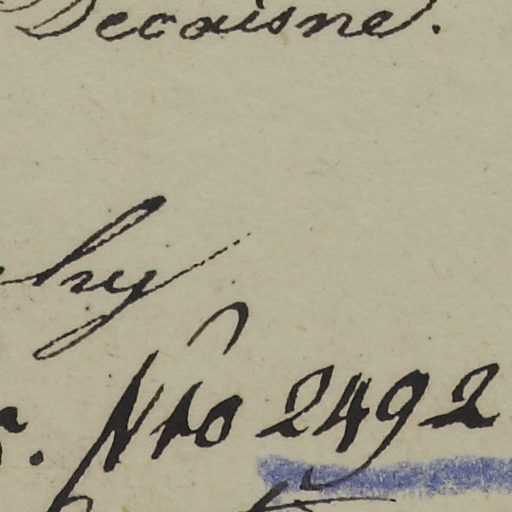 Decaisne.
Nro 2492